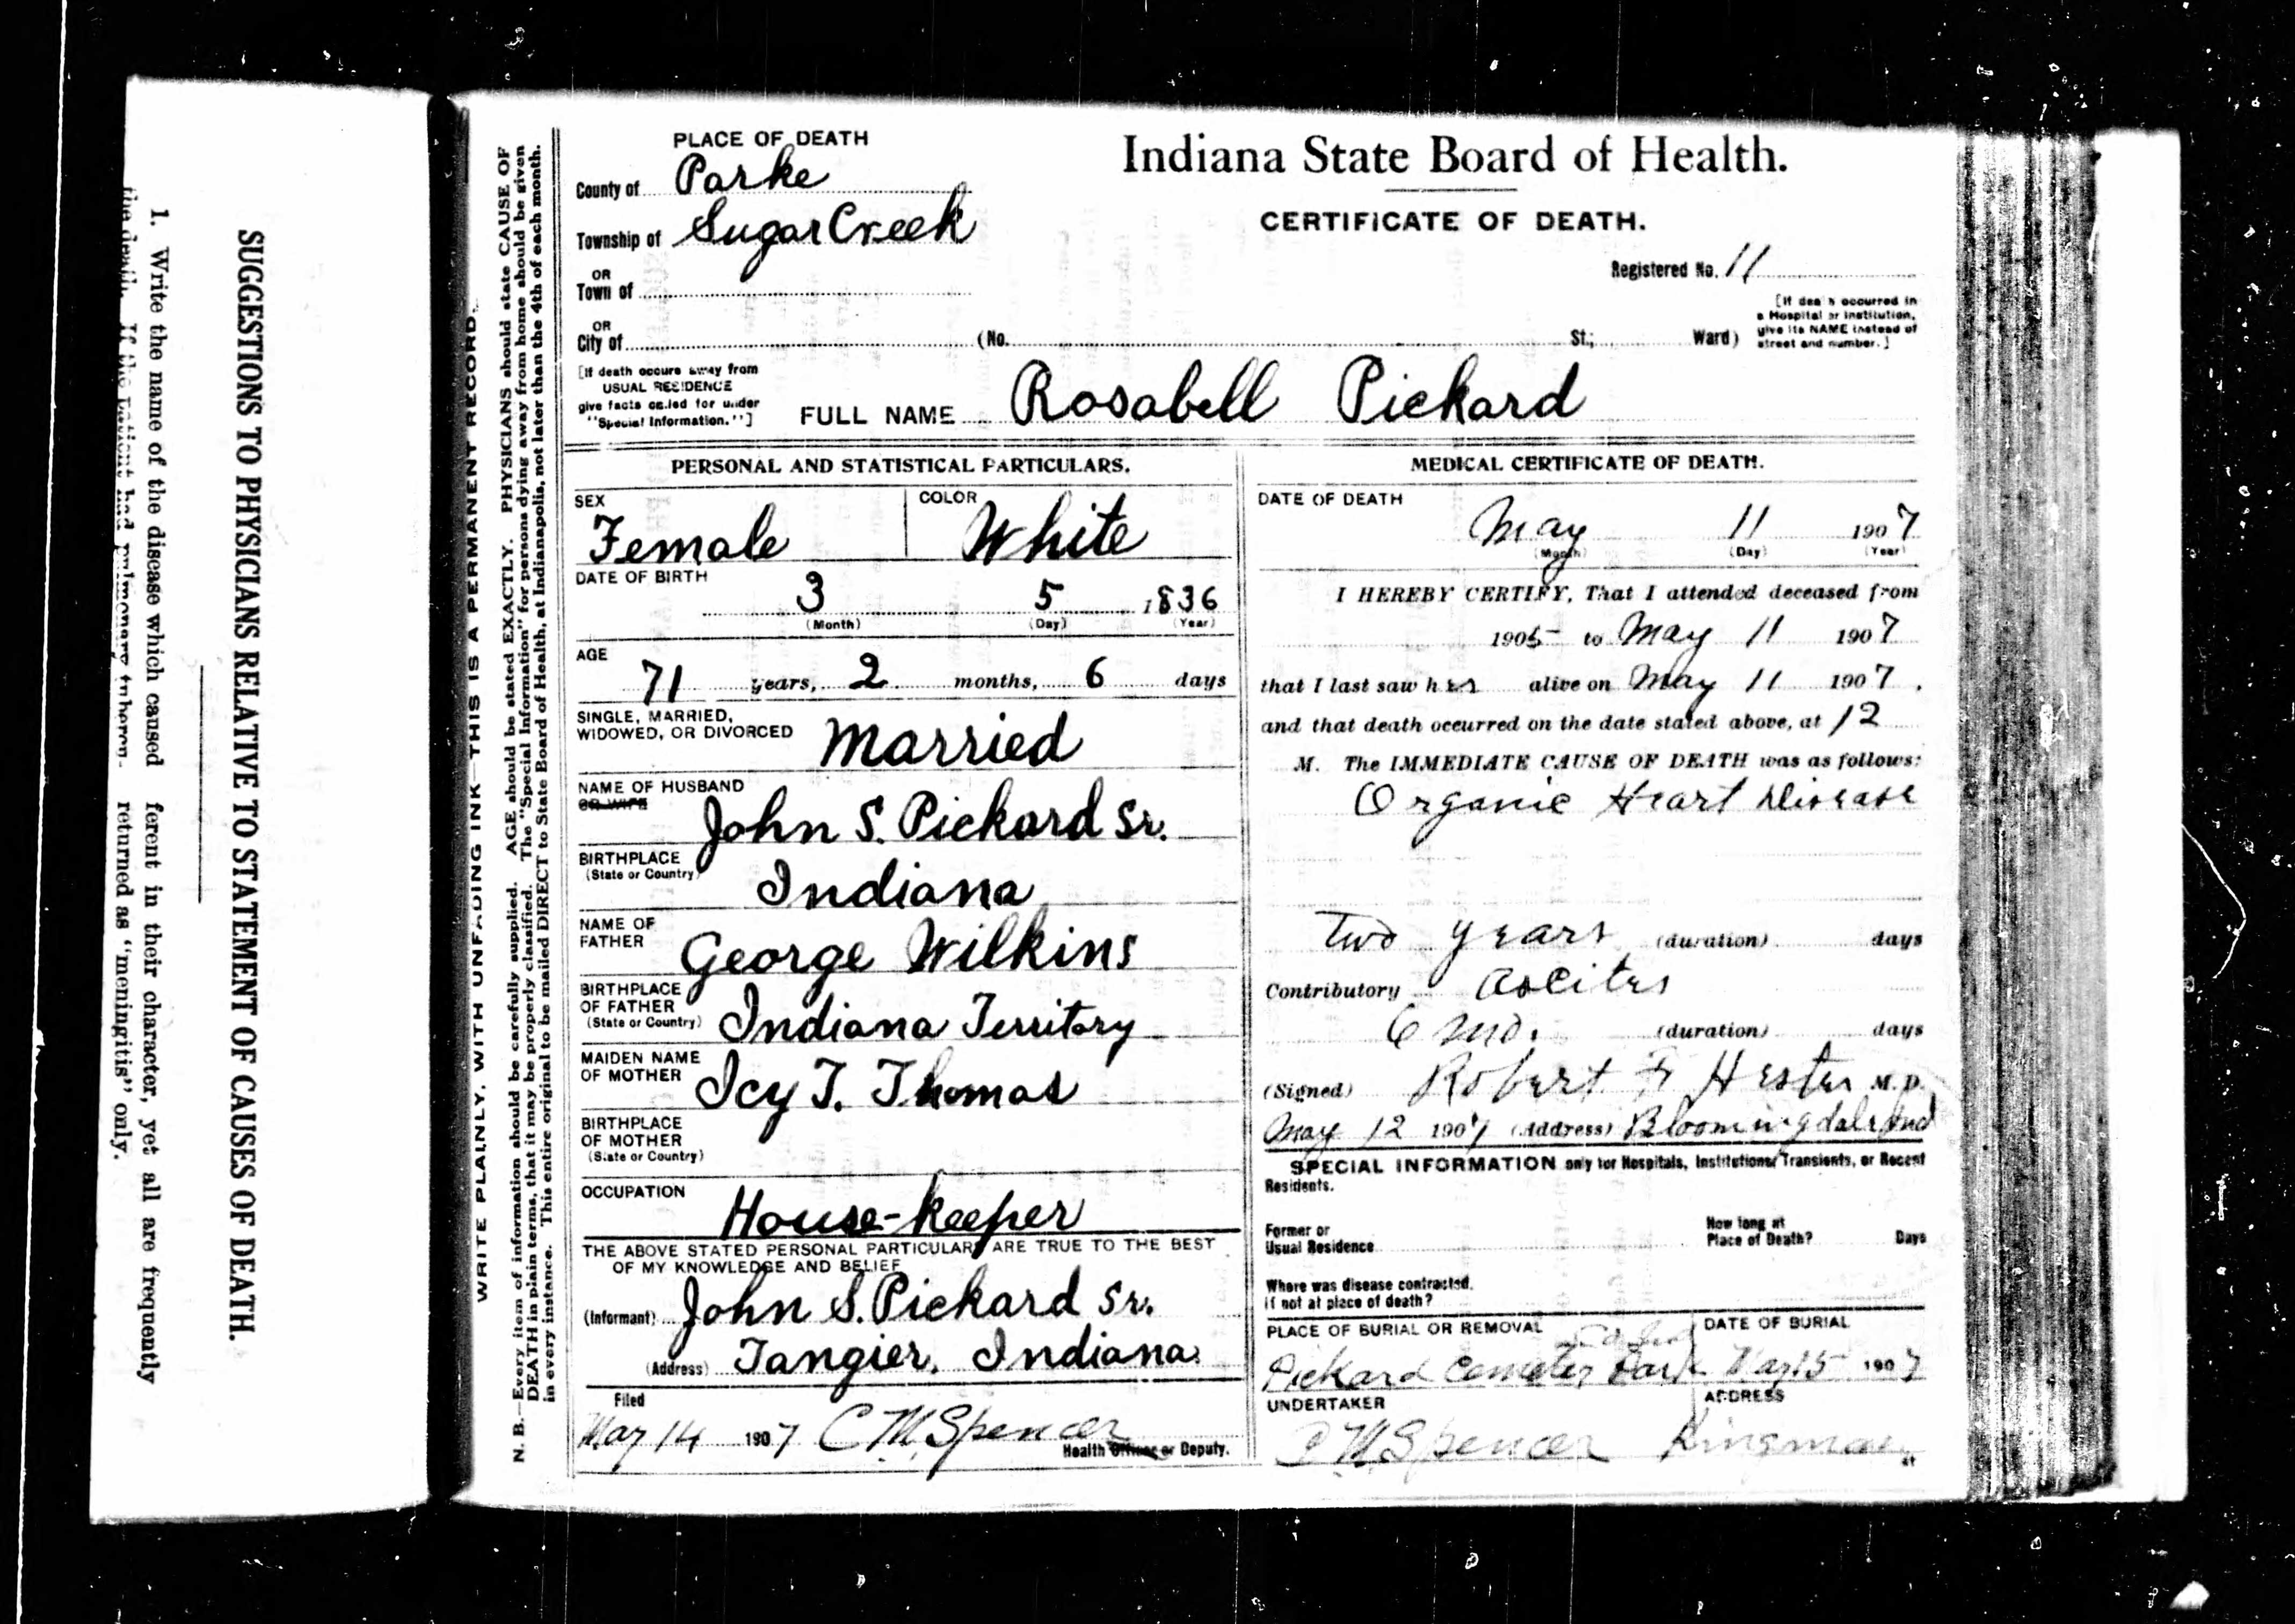 SUGGESTIONS TO PHYSICIANS RELATIVE TO STATEMENT OF CAUSES OF DEATH.
1. Write the name of the disease which caused
the death. If the patient had pulmonary tubercu-
ferent in their character, yet all are frequently
returned as "meningitis" only.
WRITE PLAINLY, WITH UNFADING INK—THIS IS A PERMANENT RECORD.
N. B.—Every item of information should be carefully supplied. AGE should be stated EXACTLY. PHYSICIANS should state CAUSE OF
DEATH in plain terms, that it may be properly classified. The "Special Information" for persons dying away from home should be given
in every instance. This entire original to be mailed DIRECT to State Board of Health, at Indianapolis, not later than the 4th of each month.
PLACE OF DEATH
County of Parke
Township of Sugar Creek
OR
Town of
OR
City of (No. St.; Ward)
Indiana State Board of Health.
CERTIFICATE OF DEATH.
Registered No. 11
[If death occurred in
a Hospital or Institution,
give its NAME instead of
street and number.]
[If death occurs away from
USUAL RESIDENCE
give facts called for under
"Special Information."]
FULL NAME Rosabell Pickard
PERSONAL AND STATISTICAL PARTICULARS.
SEX Female
COLOR White
DATE OF BIRTH
3 5 1836
(Month) (Day) (Year)
AGE
71 years, 2 months, 6 days
SINGLE, MARRIED,
WIDOWED, OR DIVORCED Married
NAME OF HUSBAND
OR WIFE
John S. Pickard Sr.
BIRTHPLACE
(State or Country)
Indiana
NAME OF
FATHER George Wilkins
BIRTHPLACE
OF FATHER
(State or Country) Indiana Territory
MAIDEN NAME
OF MOTHER Icy T. Thomas
BIRTHPLACE
OF MOTHER
(State or Country)
OCCUPATION
House-keeper
THE ABOVE STATED PERSONAL PARTICULARS ARE TRUE TO THE BEST
OF MY KNOWLEDGE AND BELIEF
(Informant) John S. Pickard Sr.
(Address) Tangier, Indiana
Filed
May 14 1907 C M Spencer
Health Officer or Deputy.
MEDICAL CERTIFICATE OF DEATH.
DATE OF DEATH
May 11 1907
(Month) (Day) (Year)
I HEREBY CERTIFY, That I attended deceased from
1905 to May 11 1907
that I last saw her alive on May 11 1907,
and that death occurred on the date stated above, at 12
M. The IMMEDIATE CAUSE OF DEATH was as follows:
Organic Heart Disease
Two years (duration) days
Contributory Ascites
6 mo. (duration) days
(Signed) Robert F Hester M.D.
May 12 1907 (Address) Bloomingdale Ind
SPECIAL INFORMATION only for Hospitals, Institutions, Transients, or Recent
Residents.
Former or
Usual Residence
How long at
Place of Death? Days
Where was disease contracted,
if not at place of death?
PLACE OF BURIAL OR REMOVAL
Pickard Cemetery Park
DATE OF BURIAL
May 15 1907
UNDERTAKER
C M Spencer
ADDRESS
Kingman